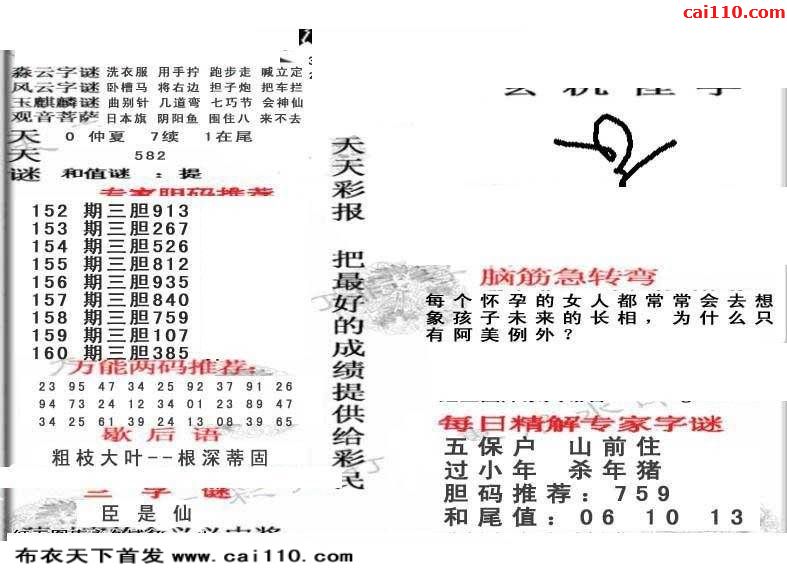 cai110.com
淼云字谜 洗衣服 用手拧 跑步走 喊立定
风云字谜 卧槽马 将右边 担子炮 把车拦
玉麒麟谜 曲别针 几道弯 七巧节 会神仙
观音菩萨 日本旗 阴阳鱼 围住八 来不去
天 0 仲夏 7续 1在尾
天 582
谜 和值谜 : 提
专家胆码推荐
152 期三胆913
153 期三胆267
154 期三胆526
155 期三胆812
156 期三胆935
157 期三胆840
158 期三胆759
159 期三胆107
160 期三胆385
万能两码推荐:
23 95 47 34 25 92 37 91 26
94 73 24 12 34 01 23 89 47
34 25 61 39 24 13 08 39 65
歇后语
粗枝大叶--根深蒂固
三字谜
臣是仙
天天彩报 把最好的成绩提供给彩民
脑筋急转弯
每个怀孕的女人都常常会去想
象孩子未来的长相，为什么只
有阿美例外？
每日精解专家字谜
五保户 山前住
过小年 杀年猪
胆码推荐：759
和尾值：06 10 13
布衣天下首发 www.cai110.com